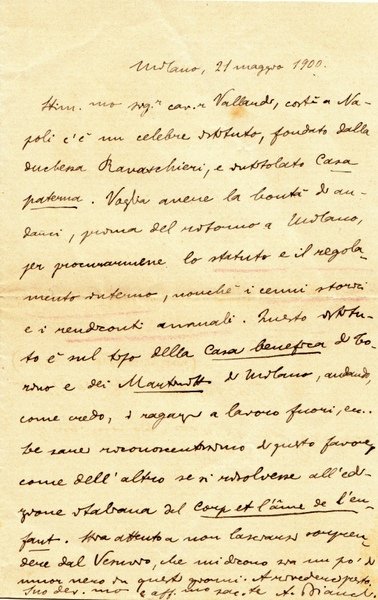 Milano, 21 maggio 1900.
Stim.mo sig.r cav.r Vallardi, costì a Na-
poli c'è un celebre istituto, fondato dalla
duchessa Ravaschieri, e intitolato Casa
paterna. Voglia avere la bontà di an-
darci, prima del ritorno a Milano,
per procurarmene lo statuto e il regola-
mento interno, nonchè i cenni storici
e i rendiconti annuali. Questo istitu-
to è sul tipo della Casa benefica di To-
rino e dei Martinitt di Milano, andando,
come credo, i ragazzi a lavoro fuori,
Le sarei riconoscentissimo di questo favore,
come dell'altro se si risolvesse all'edi-
zione italiana del Corps et l'âme de l'en-
fant. Stia attento a non lasciarsi sorpren-
dere dal Vesuvio, che mi dicono sia un po' di
umor nero in questi giorni. A rivederci presto.
Suo dev.mo e aff.mo sacerdote A. Bianchi